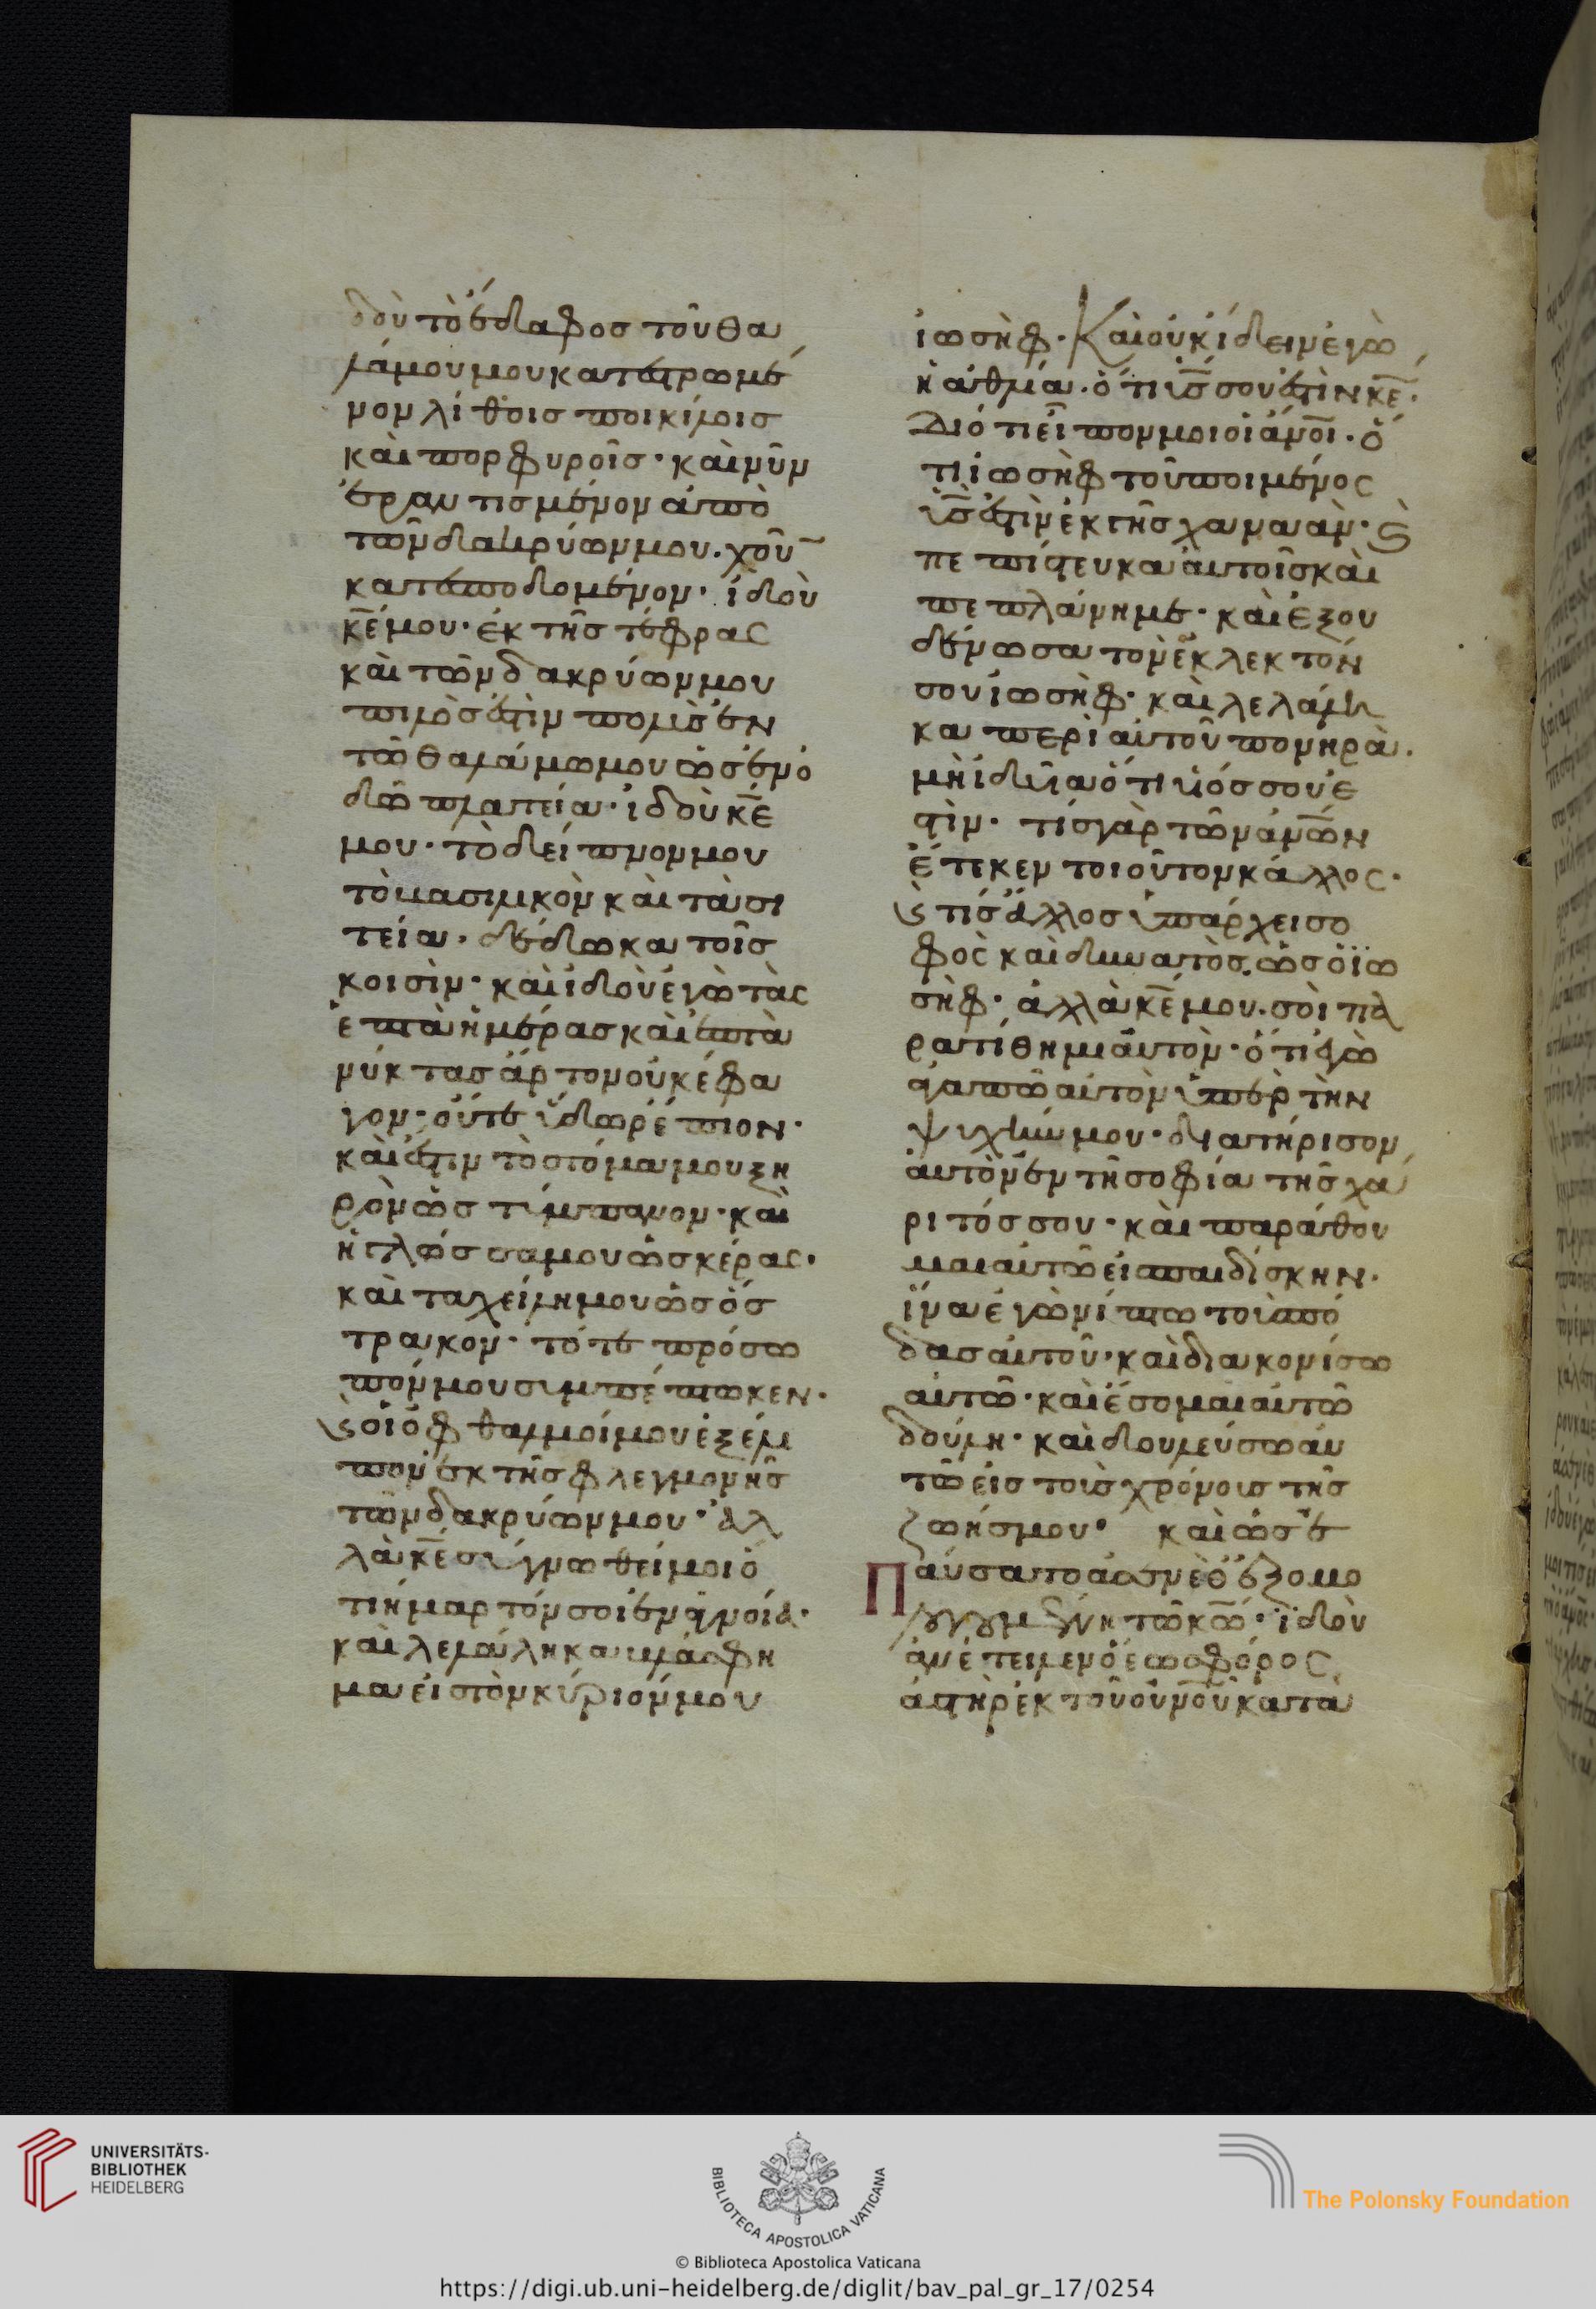 δοὺ τὸ ἔδαφος τοῦ θα
λάμου μου κατεστρωμέ
νον λίθοις ποικίλοις
καὶ πορφυροῖς· καὶ νῦν
ἐραντισμένον ἀπὸ
τῶν δακρύων μου. χοῦν
καταποδομένον· ἰδοὺ
κ̅ε̅ μου· ἐκ τῆς τέφρας
καὶ τῶν δακρύων μου
πιλὸς ἐστὶν πολὺς ἐν
τῶ θαλάμω μου ὡς ἐν ὁ
δῶ πλατεία· ἰδοὺ κ̅ε̅
μου· τὸ δεῖπνον μου
τὸ βασιλικὸν καὶ τὰ σι
τεία· δέδωκα τοῖς
κυσὶν· καὶ ἰδοὺ ἐγὼ τὰς
ἑπτὰ ἡμέρας καὶ ἑπτὰ
νύκτας ἄρτον οὐκ ἔφα
γον· οὔτε ὕδωρ ἔπιον·
καὶ ἐστιν τὸ στόμα μου ξη
ρὸν ὡς τύμπανον· καὶ
ἡ γλώσσα μου ὡς κέρας·
καὶ τα χείλη μου ὡς ὄσ
τρακον· τό τε πρόσω
πόν μου συμπέπτωκεν·
ϛ οἱ ὀφθαλμοί μου ἐξέλι
πον ἐκ τῆς φλεγμονῆς
τῶν δακρύων μου· ἀλ
λὰ κ̅ε̅ συγγνωθεί μοι ὅ
τι ἥμαρτόν σοι ἐν ἀγνοία·
καὶ λελάληκα βλάσφη
μα εἰς τὸν κύριόν μου
ἰωσὴφ· Καὶ οὐκ ἴδειν ἐγὼ
ἡ ἀθλία· ὅτι υ̅ς̅ σου ἐστὶν κ̅ε̅·
Διότι εἶπον μοι οἱ ἄν̅ο̅ι̅· ὅ
τι ἰωσὴφ τοῦ ποιμένος
υ̅ς̅ ἐστὶν ἐκ τῆς χαναὰν· ϛ
πεπίστευκα αὐτοῖς καὶ
πεπλάνημε· καὶ ἐξου
δένωσα τὸν ἐκλεκτόν
σου ἰωσὴφ· καὶ λελάλη
κα περὶ αὐτοῦ πονηρὰ·
μὴ ἰδυῖα ὅτι υἱός σου ἐ
στὶν· τίς γὰρ τῶν ἀν̅ω̅ν
ἔτεκεν τοιοῦτον κάλλος·
ϛ τίς ἄλλος ὑπάρχει σο
φὸς καὶ δυνατὸς ὡς ὁ ἰω
σὴφ· ἀλλὰ κ̅ε̅ μου· σοὶ πα
ρατίθημι αὐτὸν· ὅτι ἐγὼ
ἀγαπῶ αὐτὸν ὑπὲρ τὴν
ψυχὴν μου· διατήρισον
αὐτὸν ἐν τῆ σοφία τῆς χά
ριτός σου· καὶ παράθου
μαι αὐτῶ εἰς παιδίσκην·
ἵνα ἐγὼ νίπτω τοὺς πό
δας αὐτοῦ· καὶ διακονίσω
αὐτῶ· καὶ ἔσομαι αὐτῶ
δούλη· καὶ δουλεύσω αὐ
τῶ εἰς τοὺς χρόνους τῆς
ζωῆς μου· καὶ ὡς ἐ
Παύσατο ἀσενὲθ ἐξομο
λογουμένη τῶ κ̅ω̅· ἰδοὺ
ἀνέτειλεν ὁ ἑωσφόρος
ἀστὴρ ἐκ τοῦ οὐν̅ο̅υ̅ κατὰ
UNIVERSITÄTS-
BIBLIOTHEK
HEIDELBERG
BIBLIOTECA APOSTOLICA VATICANA
The Polonsky Foundation
© Biblioteca Apostolica Vaticana
https://digi.ub.uni-heidelberg.de/diglit/bav_pal_gr_17/0254